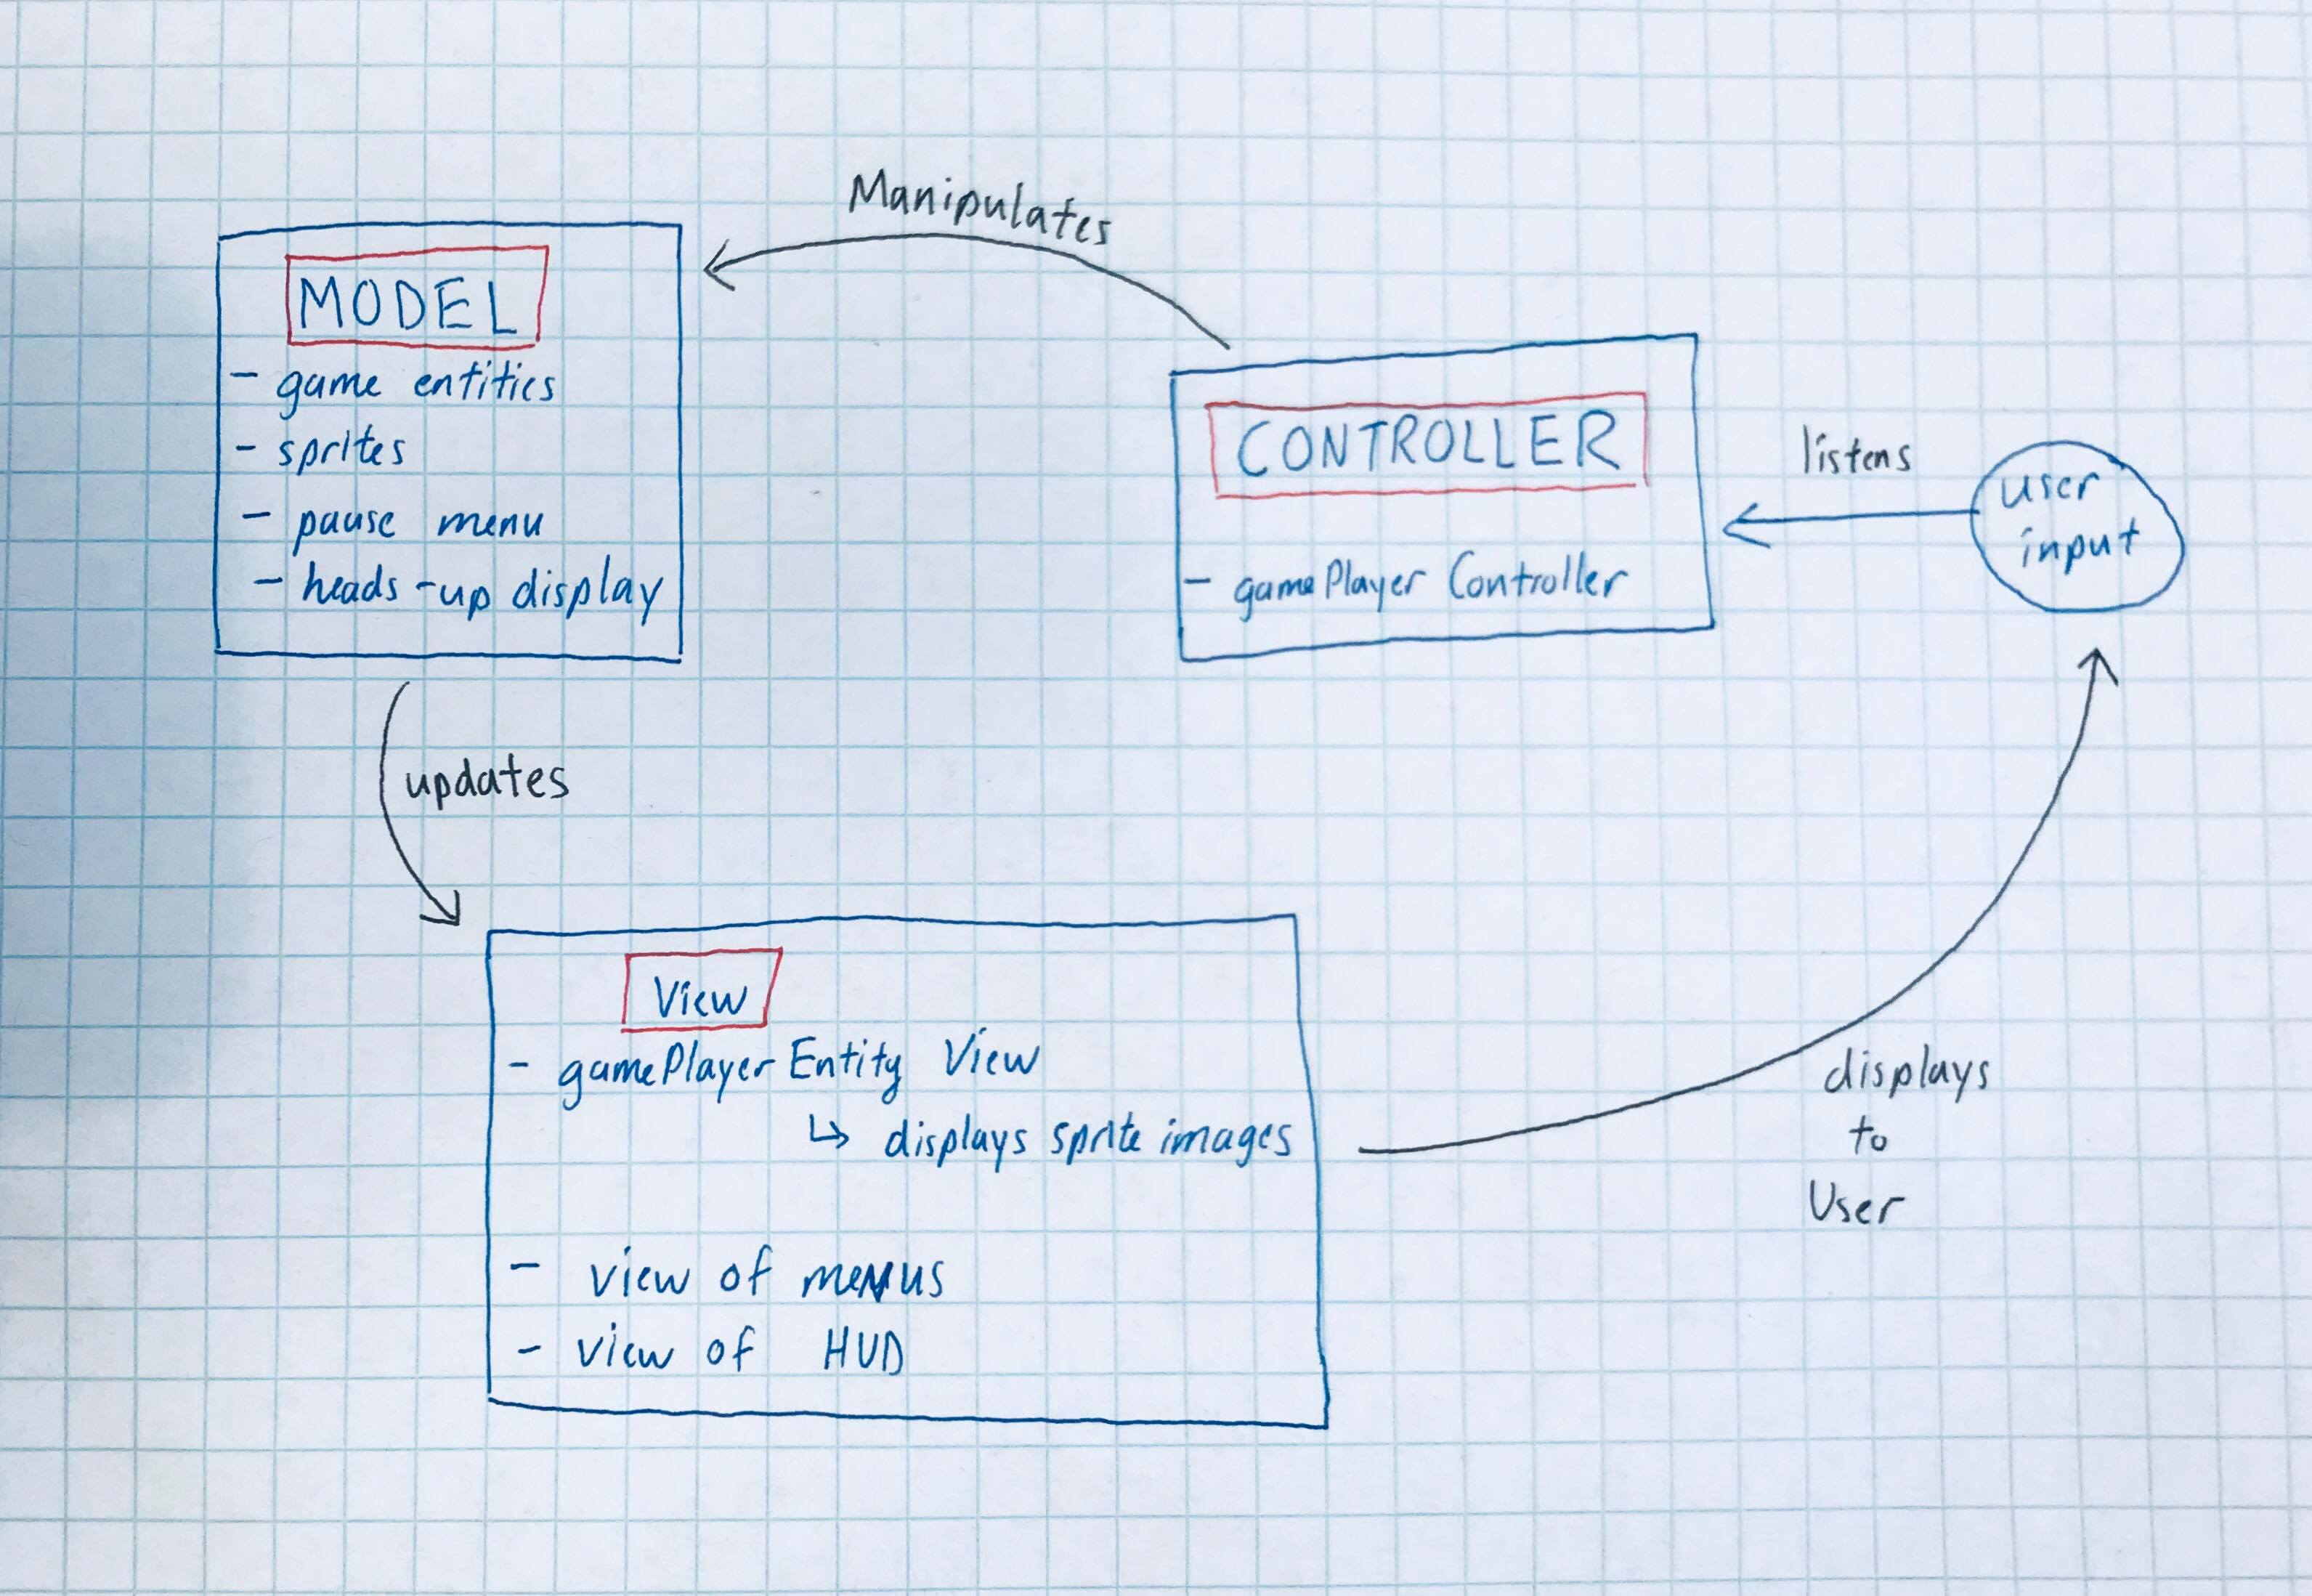 Manipulates
MODEL
- game entities
- sprites
- pause menu
- heads-up display
CONTROLLER
- gamePlayer Controller
listens
user
input
updates
View
- gamePlayer Entity View
↳ displays sprite images
- view of menus
- view of HUD
displays
to
User